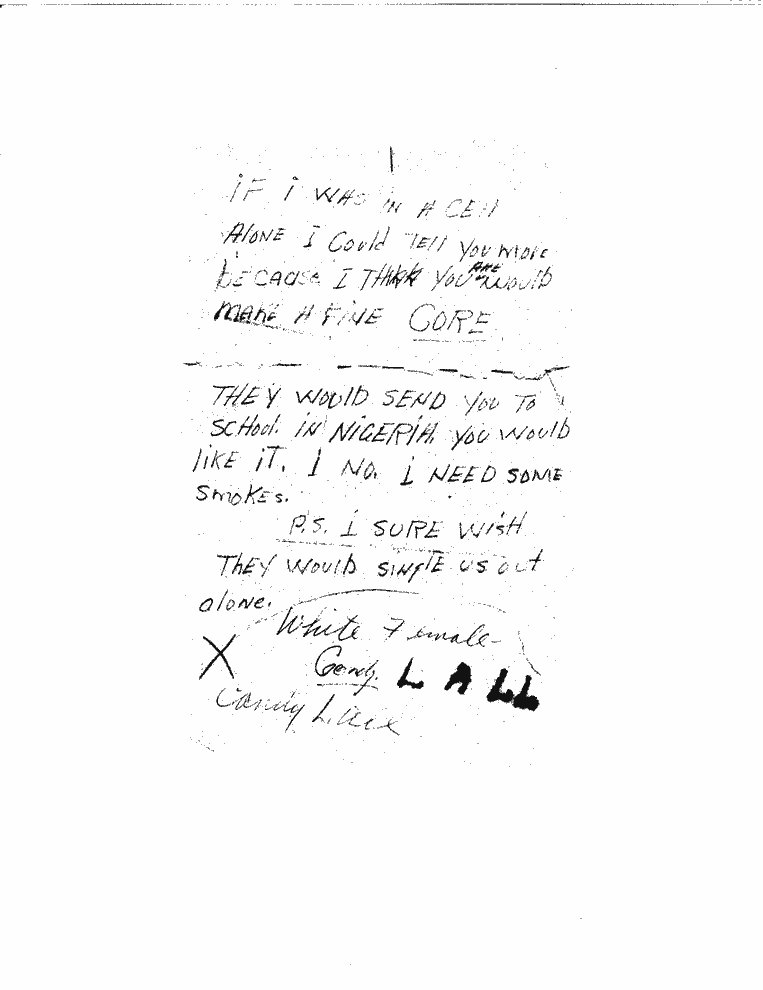 IF I WAS IN A CEll
AlONE I Could TEll You MORE
bECAUSE I THINK YOU ARE WOUlD
MAKE A FINE CORE
THEY WOUlD SEND YOU TO
SCHOOl. IN NIGERIA. YOU WOUlD
lIKE IT. I NO. I NEED SOME
SMOKES.
P.S. I SURE WISH
ThEY WOUlD SINglE US OUt
alone.
White Female
X Candy. L A LL
Candy L.